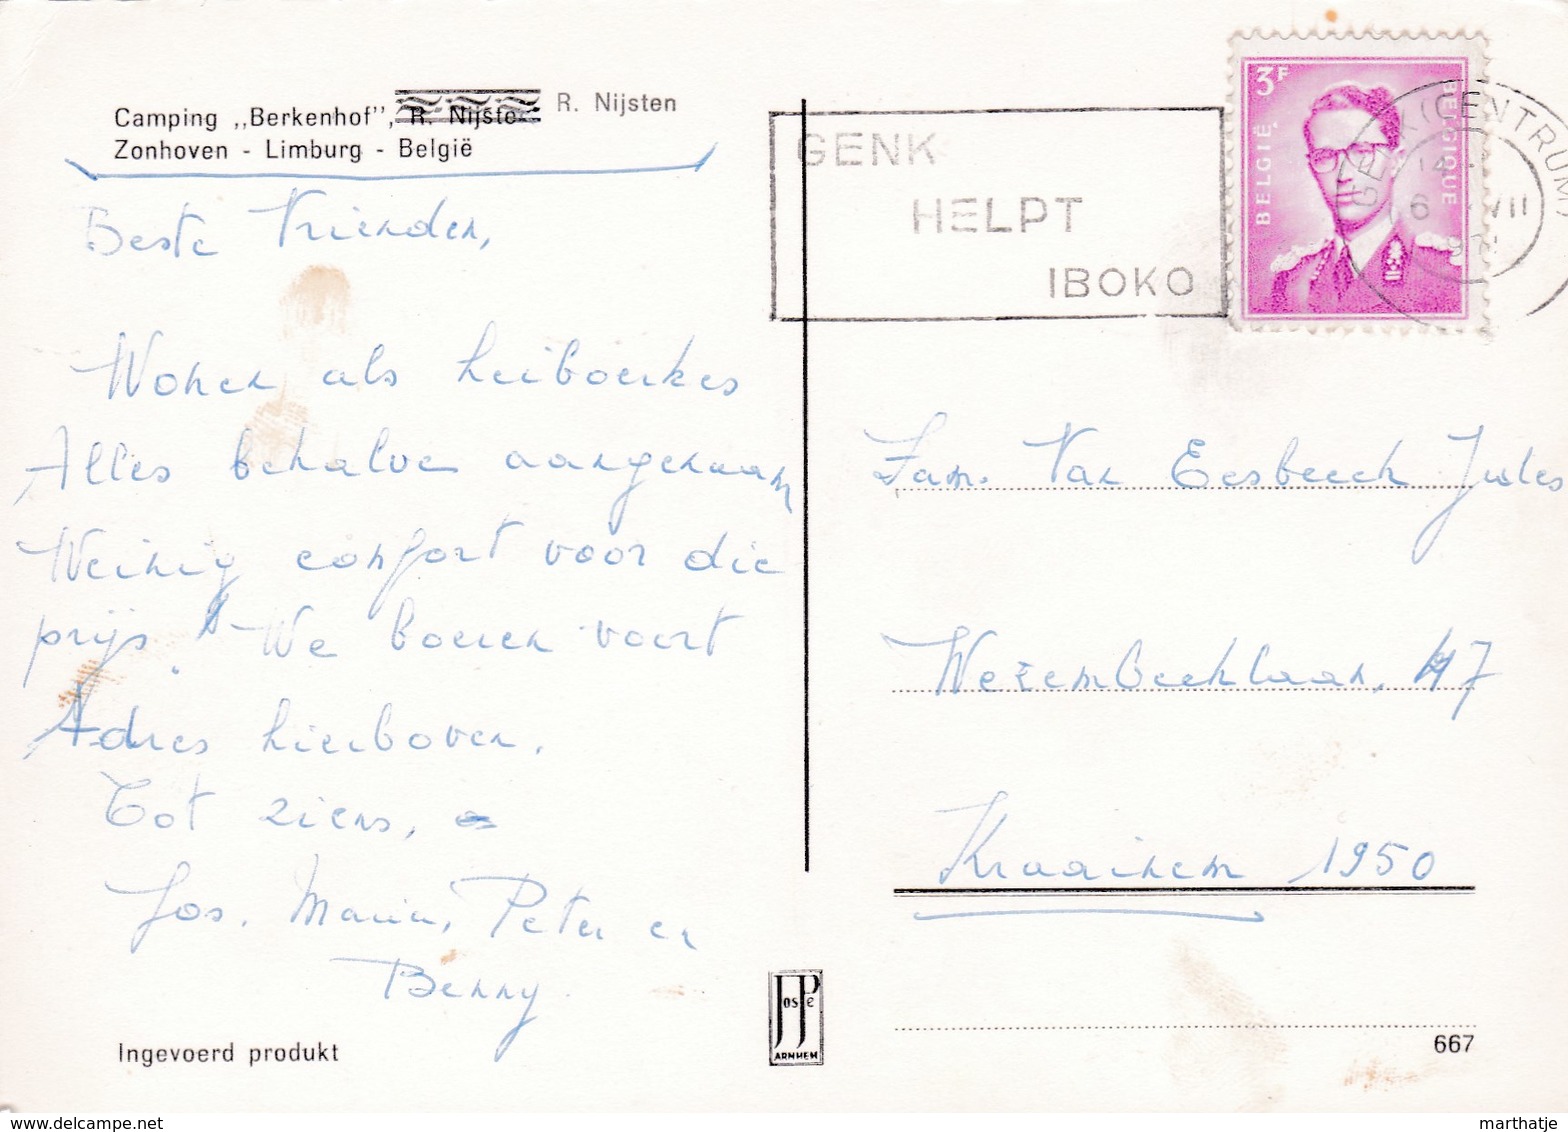 Camping „Berkenhof”, R. Nijste R. Nijsten
Zonhoven - Limburg - België
Beste Vrienden,
Wonen als heiboerkes
Alles behalve aangenaam
Weinig confort voor die
prijs! We boeren voort
Adres hierboven.
Tot ziens,
Jos, Maria, Peter en
Benny
Ingevoerd produkt
GENK
HELPT
IBOKO
3F
BELGIË
BELGIQUE
GENK (CENTRUM)
14
6 VII
Fam. Van Eesbeeck Jules
Wezembeeklaan, 47
Kraainem 1950
JosPe
ARNHEM
667
delcampe.net
marthatje